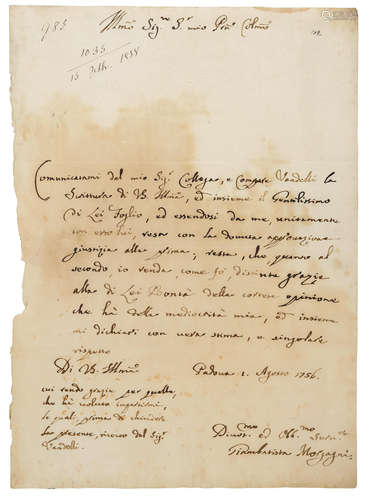 983
Illmo Sig.re S.r mio Pne Colmo
10.35
15 1858
Comunicatami dal mio Sig.r Collega, e Compare Vandelli la
Scrittura di V.S. Illma, ed insieme il Gentilissimo
di Lei Foglio, ed essendosi da me, unitamente
con esso lui, resa con la dovuta approvazione
giustizia alla prima; resta, che quanto al
secondo, io renda, come fò, distinte grazie
alla di Lei Bontà della cortese opinione
che hà della mediocrità mia, ed insieme
mi dichiari con vera stima, e singolare
rispetto
Di V.S. Illma
Padova 1. Agosto 1756.
cui rendo grazie per quella,
che hà voluto
la qual, prima di chiudere
la presente, ricevo dal Sig.r
Vandelli.
Divot.mo ed Obb.mo Serv.re
Giambatista Morgagni